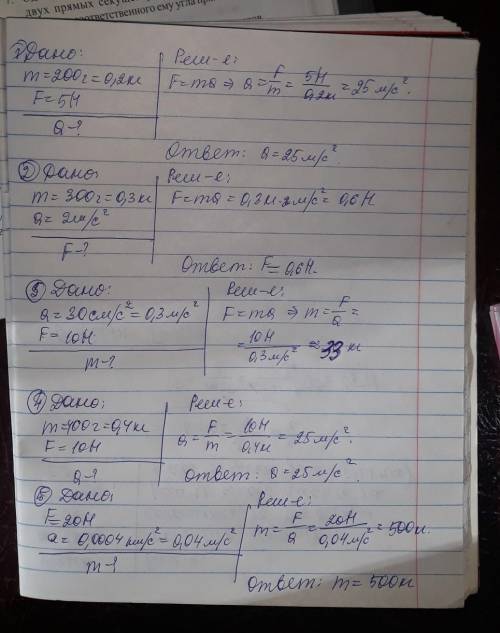 двух прямых секуще
ответственного ему угла пр
① Дано:
m=200г=0,2кг
F=5Н
a-?
Реш-е:
F=ma ⇒ a=F/m = 5Н/0,2кг = 25 м/с².
Ответ: a=25м/с².
② Дано:
m=300г=0,3кг
a=2м/с²
F-?
Реш-е:
F=ma=0,3кг·2м/с²=0,6Н
Ответ: F=0,6Н.
③ Дано:
a=30см/с²=0,3м/с²
F=10Н
m-?
Реш-е:
F=ma ⇒ m=F/a=
=10Н/0,3м/с² ≈33 кг
④ Дано:
m=400г=0,4кг
F=10Н
a-?
Реш-е:
a=F/m=10Н/0,4кг=25м/с².
Ответ: a=25м/с².
⑤ Дано:
F=20Н
a=0,0004км/с²=0,04м/с²
m-?
Реш-е:
m=F/a=20Н/0,04м/с²=500кг.
Ответ: m=500кг